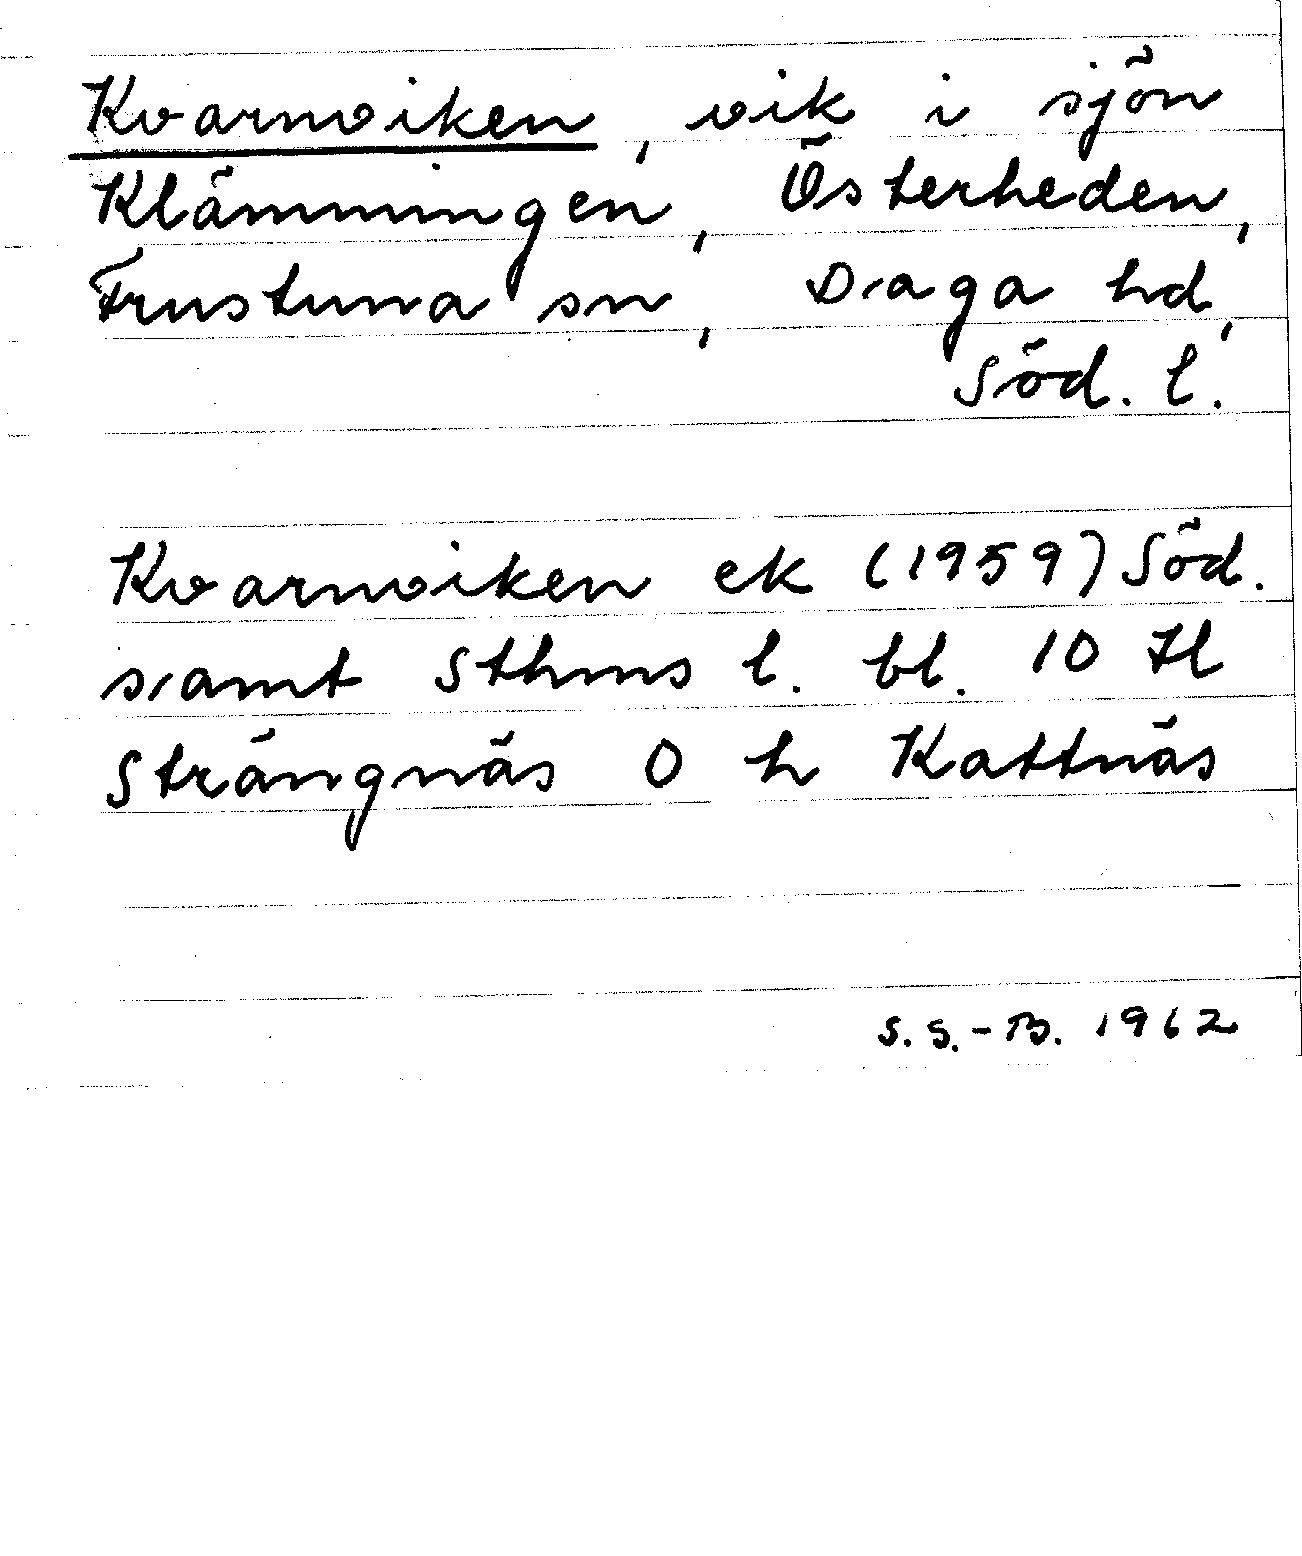 Kvarnviken, vik i sjön
Klämmingen, Österheden,
Frustuna sn, Daga hd,
Söd. l.
Kvarnviken ek (1959) Söd.
samt Sthms l. bl. 10 H
Strängnäs O h Kattnäs
S. S.-B. 1962